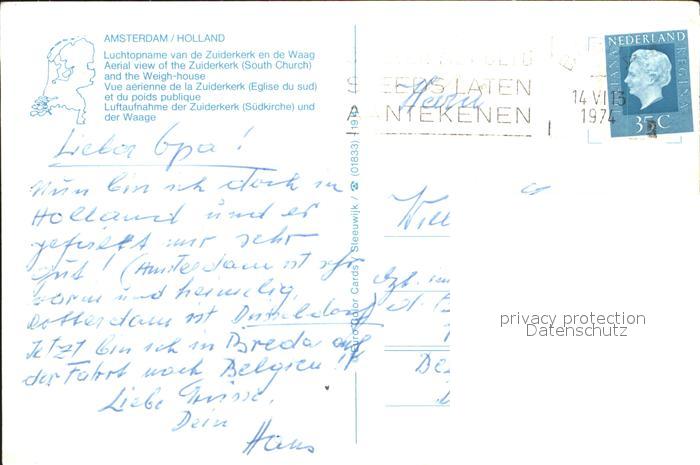 AMSTERDAM / HOLLAND
Luchtopname van de Zuiderkerk en de Waag
Aerial view of the Zuiderkerk (South Church)
and the Weigh-house
Vue aérienne de la Zuiderkerk (Eglise du sud)
et du poids publique
Luftaufnahme der Zuiderkerk (Südkirche) und
der Waage
Lieber Opa!
Nun bin ich doch in
Holland und es
gefällt mir sehr
gut! (Amsterdam ist sehr
warm und heimelig,
Rotterdam ist Düsseldorf)
Jetzt bin ich in Breda auf
der Fahrt nach Belgien!!
Liebe Grüsse,
Dein
Hans
Color Cards / Steeuwijk / ☎ (01833)
STEEDS LATEN
AANTEKENEN
14 VI 13
1974
NEDERLAND
JULIANA REGINA
35 C
Herrn
Will
privacy protection
Datenschutz